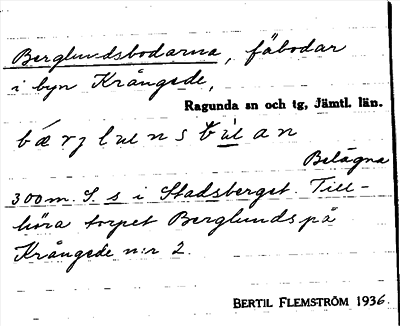 Berglundsbodarna, fäbodar
i byn Krångede,
Ragunda sn och tg, Jämtl. län.
Belägna
300 m. S. s i Stadsberget. Till-
höra torpet Berglunds på
Krångede n:r 2.
BERTIL FLEMSTRÖM 1936